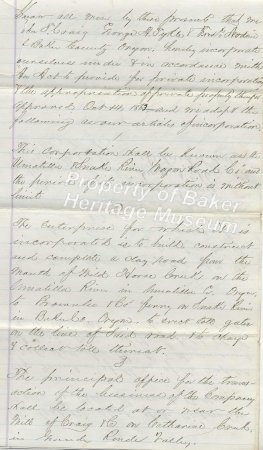 Know all men by these presents that we
John S. Craig George H. Tyler & Fred
of Baker County Oregon, hereby incorporate
ourselves under & in accordance with
An Act to provide for private incorporation
& the appropriation of private property therefor
approved Oct 14, and we adopt the
following as our articles of incorporation
1
This Corporation shall be known as the
Umatilla & Snake River Wagon Road Co and
the period of its incorporation is without
limit
Property of Baker
Heritage Museum
2
The enterprise for which it is
incorporated is to build construct
and complete a clay road from the
Mouth of Wild Horse Creek, on the
Umatilla River in Umatilla Co. Oregon,
to Brownlee & Co ferry on Snake River
in Baker Co. Oregon. to erect toll gates
on the line of said road & to charge
& collect tolls thereat.
3
The principal office for the trans-
action of the business of the Company
shall be located at or near the
Mill of Craig & Co on Catharine Creek
in Grande Ronde Valley.